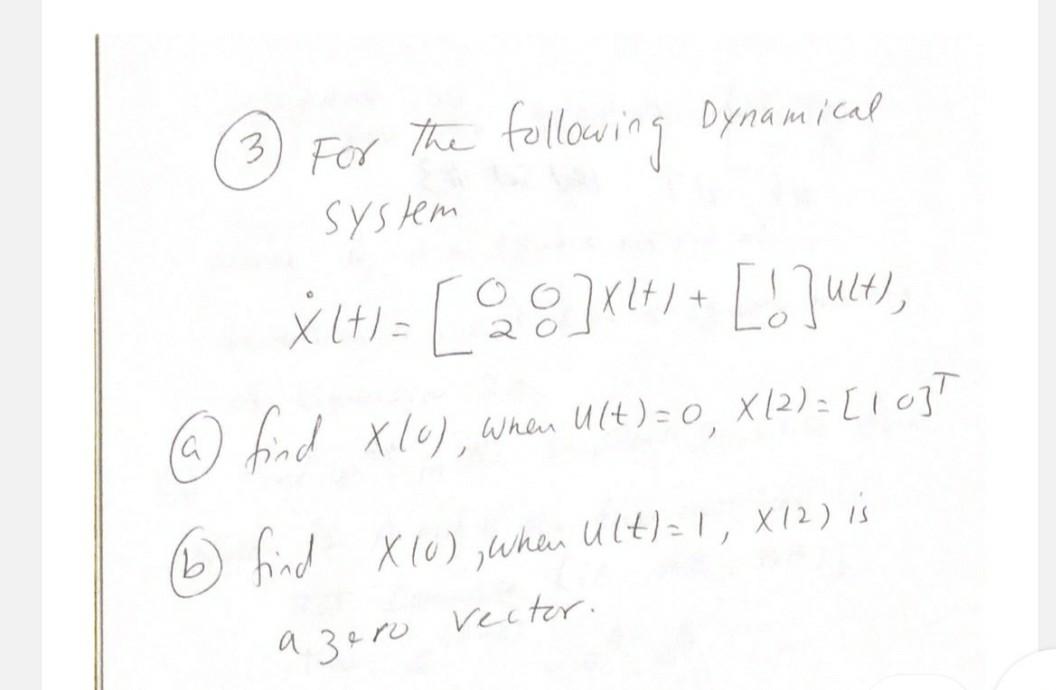 ③ For the following Dynamical
system
ẋ(t) = [0 0; 2 0] x(t) + [1; 0] u(t),
ⓐ find x(0), when u(t)=0, x(2)=[1 0]ᵀ
ⓑ find x(0), when u(t)=1, x(2) is
a zero vector.